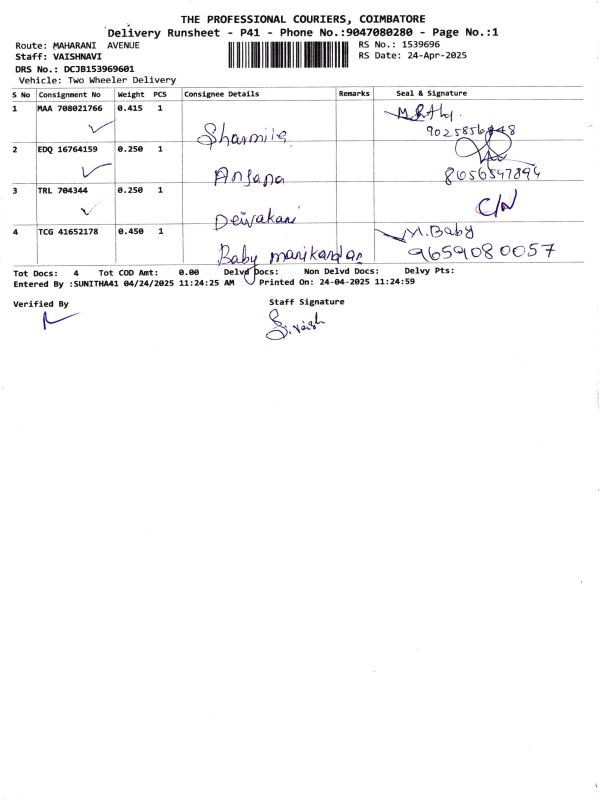 THE PROFESSIONAL COURIERS, COIMBATORE
Delivery Runsheet - P41 - Phone No.:9047080280 - Page No.:1
Route: MAHARANI AVENUE RS No.: 1539696
Staff: VAISHNAVI RS Date: 24-Apr-2025
DRS No.: DCJB153969601
Vehicle: Two Wheeler Delivery
S No Consignment No Weight PCS Consignee Details Remarks Seal & Signature
1 MAA 708021766 0.415 1 Sharmila
2 EDQ 16764159 0.250 1 Anjana 8656547894
3 TRL 704344 0.250 1 Deivakani C/N
4 TCG 41652178 0.450 1 Baby manikandan M.Baby 9659080057
Tot Docs: 4 Tot COD Amt: 0.00 Delvd Docs: Non Delvd Docs: Delvy Pts:
Entered By :SUNITHA41 04/24/2025 11:24:25 AM Printed On: 24-04-2025 11:24:59
Verified By Staff Signature
S. Vaish